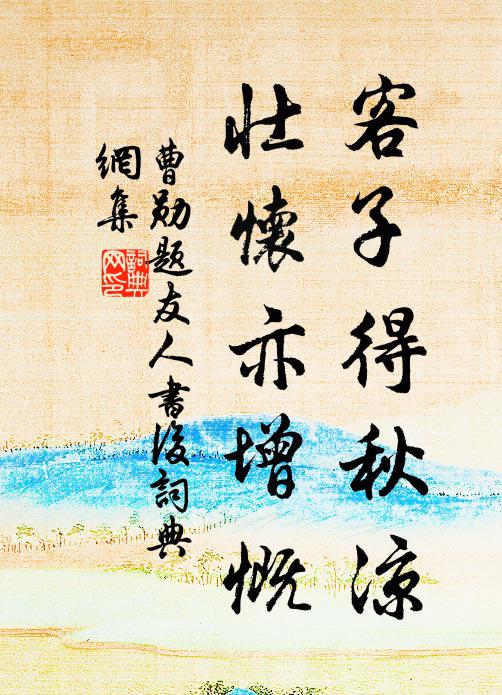 客子得秋涼
壯懷亦增慨
曹勛題友人書後詞典
網集
詞典
网印